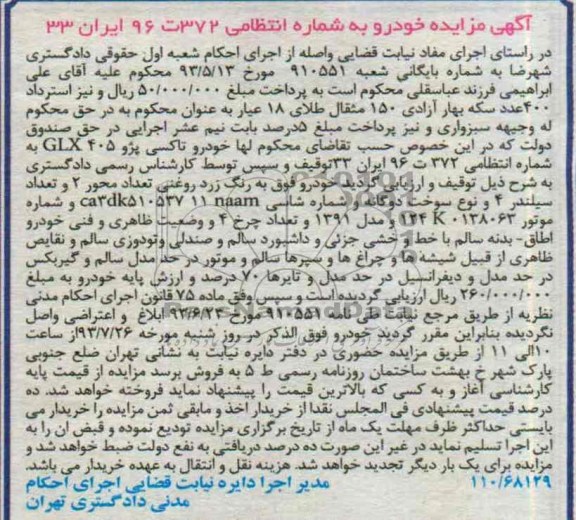 آگهی مزایده خودرو به شماره انتظامی ۳۷۲ت ۹۶ ایران ۳۳
در راستای اجرای مفاد نیابت قضایی واصله از اجرای احکام شعبه اول حقوقی دادگستری
شهرضا به شماره بایگانی شعبه ۹۱۰۵۵۱ مورخ ۹۳/۵/۱۳ محکوم علیه آقای علی
ابراهیمی فرزند عباسقلی محکوم است به پرداخت مبلغ ۵۰/۰۰۰/۰۰۰ ریال و نیز استرداد
۴۰۰عدد سکه بهار آزادی ۱۵۰ مثقال طلای ۱۸ عیار به عنوان محکوم به در حق محکوم
له وجیهه سبزواری و نیز پرداخت مبلغ ۵درصد بابت نیم عشر اجرایی در حق صندوق
دولت که در این خصوص حسب تقاضای محکوم لها خودرو تاکسی پژو ۴۰۵ GLX به
شماره انتظامی ۳۷۲ ت ۹۶ ایران ۳۳توقیف و سپس توسط کارشناس رسمی دادگستری
به شرح ذیل توقیف و ارزیابی گردید خودرو فوق به رنگ زرد روغنی تعداد محور ۲ و تعداد
سیلندر ۴ و نوع سوخت دوگانه و شماره شاسی naam ۱۱ ca۳dk۵۱۰۵۳۷ و شماره
موتور ۱۲۴ K ۰۱۳۸۰۶۳ و مدل ۱۳۹۱ و تعداد چرخ ۴ و وضعیت ظاهری و فنی خودرو
اطاق- بدنه سالم با خط و خشی جزئی و داشبورد سالم و صندلی وتودوزی سالم و نقایص
ظاهری از قبیل شیشه ها و چراغ ها و سپرها سالم و موتور در حد مدل سالم و گیربکس
در حد مدل و دیفرانسیل در حد مدل و تایرها ۷۰ درصد و ارزش پایه خودرو به مبلغ
۲۶۰/۰۰۰/۰۰۰ ریال ارزیابی گردیده است و سپس وفق ماده ۷۵ قانون اجرای احکام مدنی
نظریه از طریق مرجع نیابت طی نامه ۹۱۰۵۵۱ مورخ ۹۳/۶/۲۳ ابلاغ و اعتراضی واصل
نگردیده بنابراین مقرر گردید خودرو فوق الذکر در روز شنبه مورخه ۹۳/۷/۲۶از ساعت
۱۰الی ۱۱ از طریق مزایده حضوری در دفتر دایره نیابت به نشانی تهران ضلع جنوبی
پارک شهر خ بهشت ساختمان روزنامه رسمی ط ۵ به فروش برسد مزایده از قیمت پایه
کارشناسی آغاز و به کسی که بالاترین قیمت را پیشنهاد نماید فروخته خواهد شد. ده
درصد قیمت پیشنهادی فی المجلس نقدا از خریدار اخذ و مابقی ثمن مزایده را خریدار می
بایستی حداکثر ظرف مهلت یک ماه از تاریخ برگزاری مزایده تودیع نموده و قبض ان را به
این اجرا تسلیم نماید در غیر این صورت ده درصد دریافتی به نفع دولت ضبط خواهد شد و
مزایده برای یک بار دیگر تجدید خواهد شد. هزینه نقل و انتقال به عهده خریدار می باشد.
۱۱۰/۶۸۱۲۹ مدیر اجرا دایره نیابت قضایی اجرای احکام
مدنی دادگستری تهران